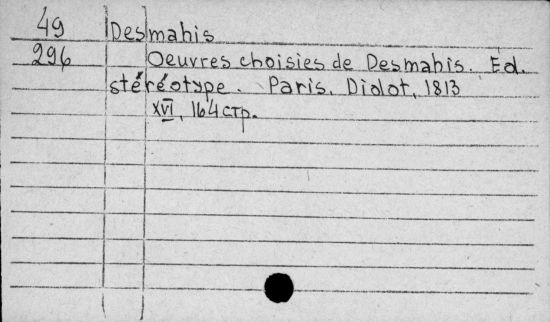 49 Desmahis
296 Oeuvres choisies de Desmahis. Éd.
stéréotype. Paris, Didot, 1813
XVI, 164 стр.